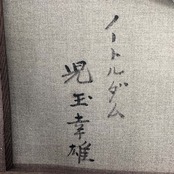 ノートルダム
児玉幸雄